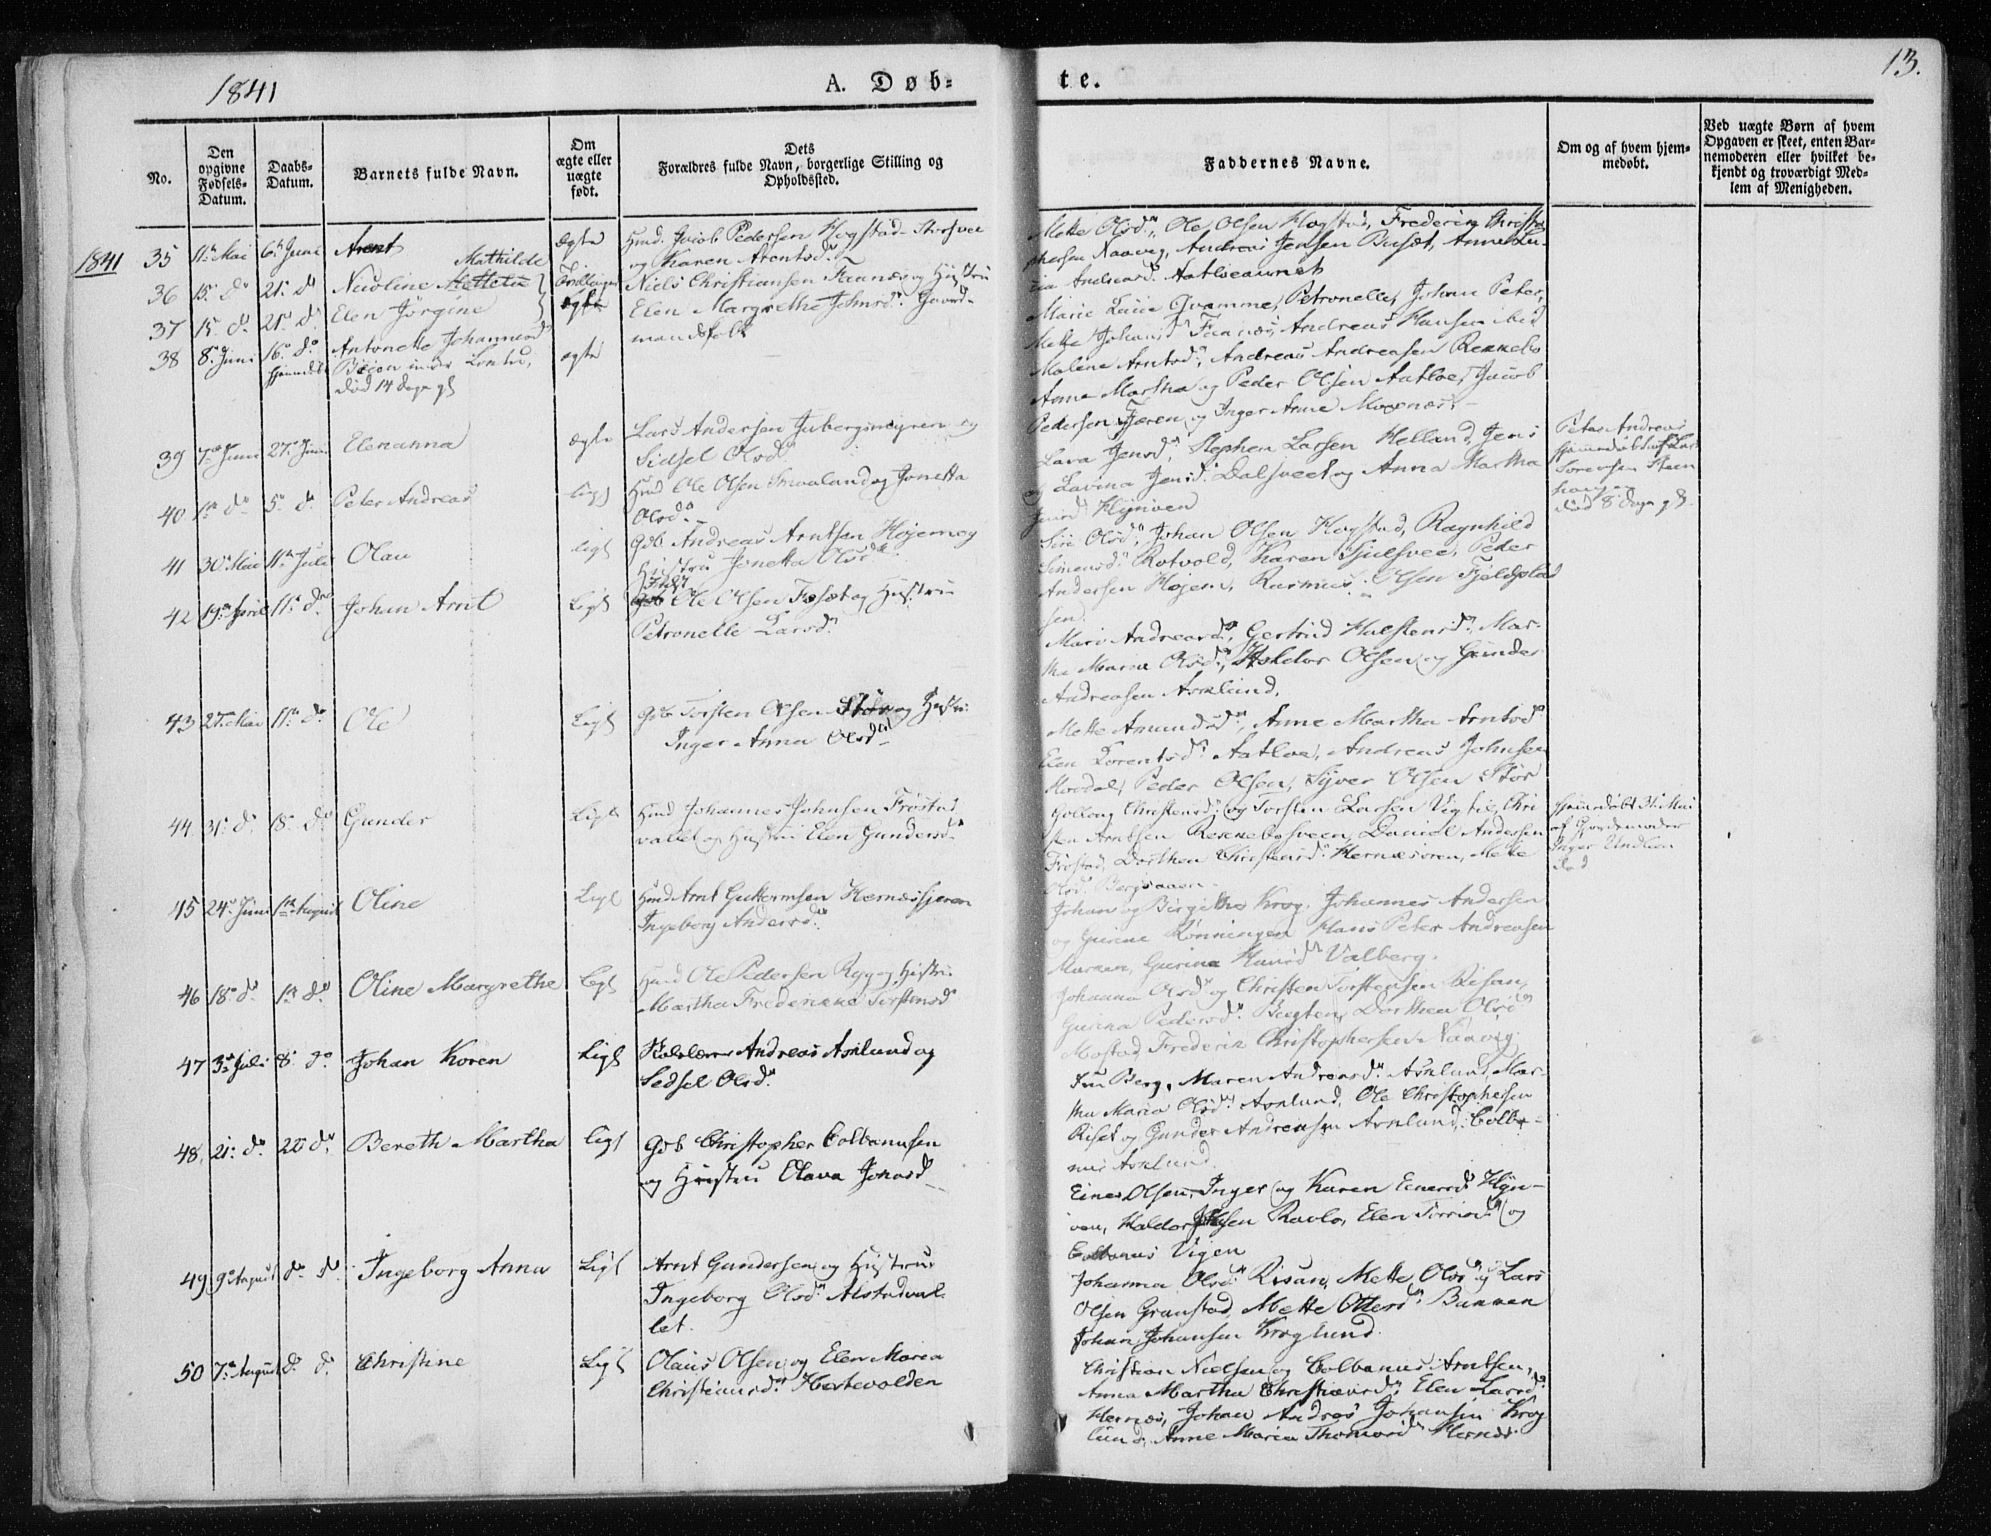 1841
A. Døb-
te.
13.
No.
Den
opgivne
Fødsels-
Datum.
Daabs-
Datum.
Barnets fulde Navn.
Om
ægte eller
uægte
født.
Dets
Forældres fulde Navn, borgerlige Stilling og
Opholdssted.
Faddernes Navne.
Om og af hvem hjem-
medøbt.
Ved uægte Børn af hvem
Opgaven er skeet, enten Bar-
nemoderen eller hvilket be-
kjendt og troværdigt Med-
lem af Menigheden.
1841
35 11te Mai 6te Juni Arent
Ægte
Huusmd. Jacob Pedersen Hogstad
og Karen Arentsdn
Mette Olsdn, Ole Olsen Hogstad, Frederik Christo-
phersen Naavig, Andreas Jensen Buset, Anne Lu-
cia Andreasdn Aatloeaunet
36 15. do 21. do Nicoline Mathilde
Tvillinger
Niels Christiansen Faanes og Hustru
37 15. do 21. do Elen Jørgine
ægte
Elen Margrethe Johnsdn Gaard-
mandsfolk
Marie Lucie Qvamme, Petronelle, Johan Peter,
Mette Johansdn Faanes, Andreas Hansen ibid
38 8. Juni 16. do Antonette Johannesd
ægte
død 14 dage gl
Malene Arntsdn, Andreas Andreasen Remmebo
Anne Martha og Peder Olsen Aatloe, Jacob
Pedersen Fjæren og Inger Anne Moxnæs.
39 7de Juni 27. Juni Elenanna
ægte
Lars Andersen Jubergsmyren og
Sidsel Olsdn
Lava Jensdn, Stephen Larsen Helland, Jens
og Lavina Jensdn Dalsveet og Anna Martha
40 1te do 5. do Peter Andreas
ligs
Huusmd Ole Olsen Smaaland og Jonetta
Olsdn
Peter Andreas
hjemmedøbt af Lars
Sørensen Steen
haugen
død 8 dage gl
41 30te Mai 11te Juli Olau
ligs
Gdb. Andreas Arntsen Højem og
Hustru Jonetta Olsdn
Siri Olsdn, Johan Olsen Hogstad, Ragnhild
Simensdn Rotvold, Karen Hjulsvee, Peder
Andersen Højem, Rasmus Olsen Fjeldplad
sen.
42 19de April 11te do Johan Arnt
Ligs
Ole Olsen Foset og Hustru
Petronelle Larsdn
Mari Andreasdn, Gertrud Halstensdn, Mar-
tha Maria Olsdn, Haldor Olsen og Gunder
Andreasen Asklund.
43 27. Mai 11te do Ole
Ligs
Gdb Torsten Olsen Støre og Hustru
Inger Anna Olsdn
Mette Amundsdn, Anne Martha Arntsdn
Elen Lorentsdn Aatloe, Andreas Johnsen
Hordal, Peder Olsen, Syver Olsen Stør
44 31. do 18. do Gunder
Ligs
Huusmd Johannes Johnsen Frøstad
vallet og Hustru Elen Gundersdn
Gollaug Christensdn og Torsten Larsen Vigtil, Chri
sten Arntsen Remmebosveen, Daniel Andersen
Frøstad, Dorthea Christensdn Hernæsøren, Mette
Olsdn Bergsaaen
hjemmedøbt 31. Mai
af Gjordemoder
Inger Undlien
død
45 24. Juni 1te August Oline
Ligs
Huusmd Arnt Guttormsen Hernæsfjæren
Ingeborg Andersdn
Johan og Birgithe Krog, Johannes Andersen
og Gurine Rønningen, Hans Peter Andreasen
Marken, Gurina Hansdn Valberg.
46 18. do 1te do Oline Margrethe
Ligs
Huusmd Ole Pedersen Ryg og Hustru
Martha Frederikke Torstensdn
Johanna Olsdn og Christen Torstensen Risan,
Gurina Pedersdn Bugten, Dorthea Olsdn
Mostad, Frederik Christophersen Naavig
47 3. Juli 8. do Johan Koren
Ligs
Skolelærer Andreas Asklund og
Sedsel Olsdn
Fru Berg, Maren Andreasdn Asklund, Mar-
tha Maria Olsdn Asklund, Ole Christophersen
Riset og Gunder Andreasen Asklund, Colba-
nus Asklund.
48. 21. do. 22 do. Bereth Martha
ligs
Gdb Christopher Colbanusen
og Hustru Olava Jonasd
Einer Olsen, Inger og Karen Einersd Hyn-
ven, Haldor Olsen Ravlo, Elen Siversdn og
Colbanus Vigen
49 9. August do do. Ingeborg Anna
Ligs
Arnt Gundersen og Hustrue
Ingeborg Olsdn Alstadval-
let.
Johanna Olsdn Risan, Mette Olsdn og Lars
Olsen Granstad, Mette Ottersdn Bakken
Johan Johansen Kroglund.
50 7. August do do. Christine
Ligs
Olaus Olsen og Elen Maria
Christiansdn Hestevolden
Christian Nielsen og Colbanus Arntsen,
Anna Martha Christiansdn Elen Larsdn
Hernæs, Johan Andreas Johansen Krog
lund, Anne Maria Thomasdn Hernæs.